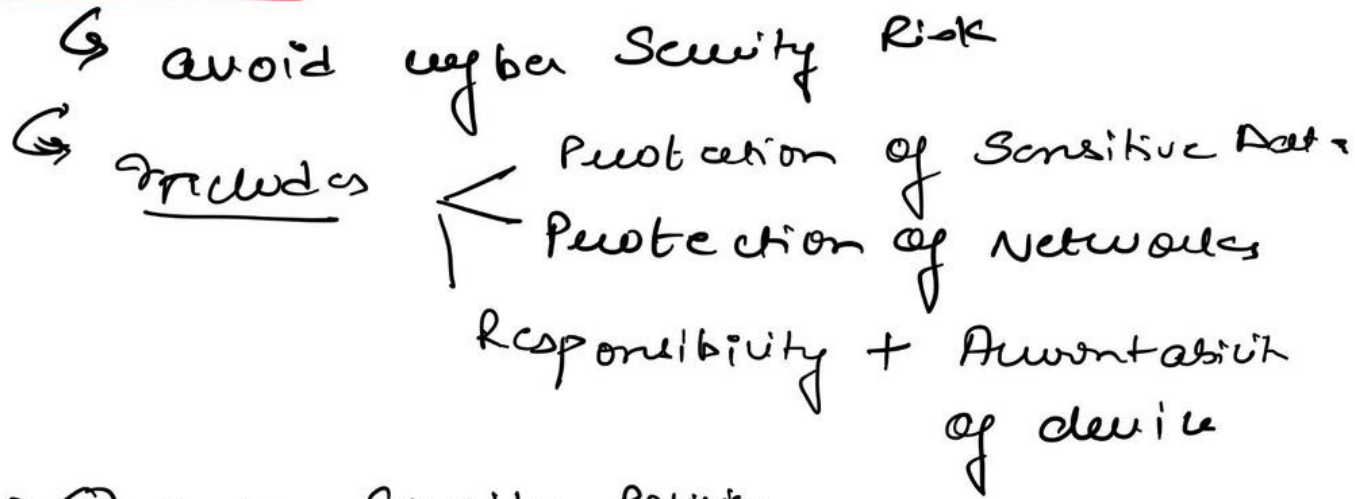 avoid cyber Security Risk
Includes
Protection of Sensitive Data
Protection of Networks
Responsibility + Accountability
of device
Security Policy